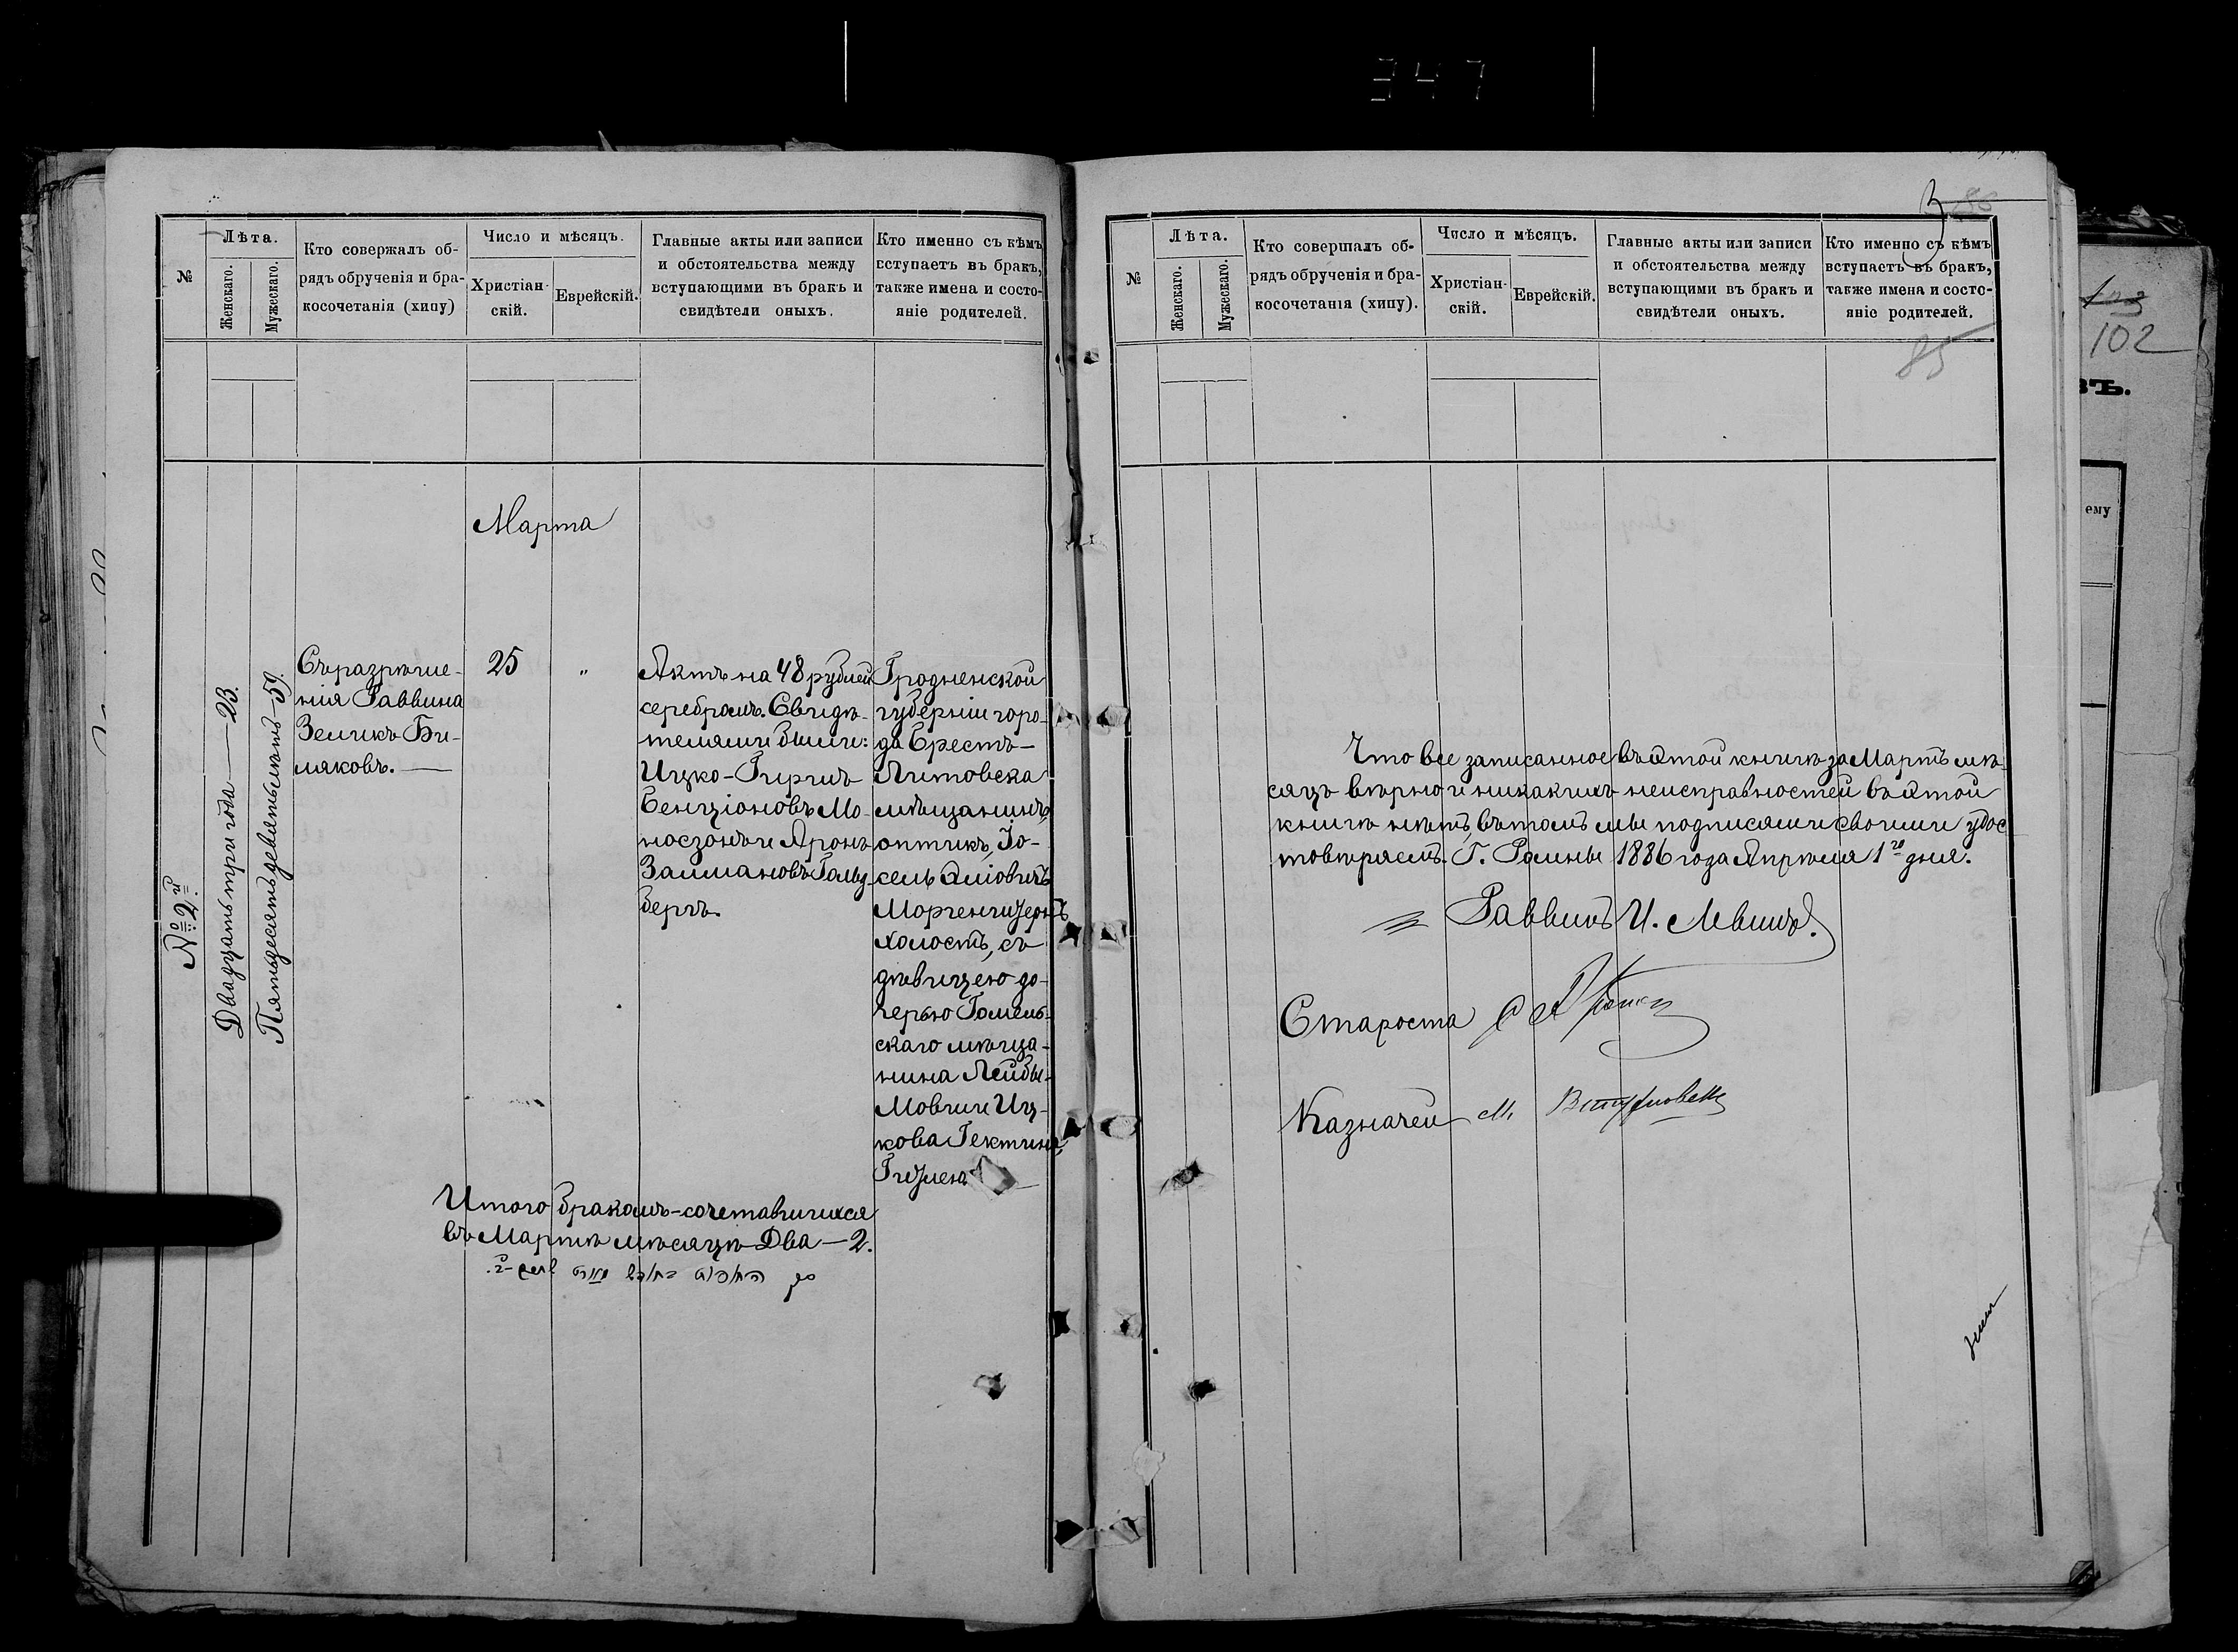 347
№
Лѣта.
Женскаго.
Мужескаго.
Кто совержалъ об-
рядъ обрученія и бра-
косочетанія (хипу)
Число и мѣсяцъ.
Христіан-
скій.
Еврейскій.
Главные акты или записи
и обстоятельства между
вступающими въ бракъ и
свидѣтели оныхъ.
Кто именно съ кѣмъ
вступаетъ въ бракъ,
также имена и состо-
яніе родителей.
Марта
№ 2й
Двадцать три года — 23.
Пятьдесятъ девять лѣтъ — 59.
Съ разрѣше-
нія Раввина
Зеликъ Би-
ляковъ. —
25
"
Актъ на 48 рублей
серебромъ. Свидѣ-
телями были:
Ицко-Гиршъ
Бенціоновъ Мо-
носзонъ и Аронъ
Залмановъ Гольд-
бергъ.
Гродненской
губерніи горо-
да Брестъ-
Литовска
мѣщанинъ,
оптикъ, Іо-
сель Эліовичъ
Моргенштернъ
холостъ, съ
дѣвицею до-
черью Гомель-
скаго мѣща-
нина Лейбы-
Мовши Иц-
кова
Итого бракомъ-сочетавшихся
въ Мартѣ мѣсяцѣ Два — 2.
3
86
№
Лѣта.
Женскаго.
Мужескаго.
Кто совершалъ об-
рядъ обрученія и бра-
косочетанія (хипу).
Число и мѣсяцъ.
Христіан-
скій.
Еврейскій.
Главные акты или записи
и обстоятельства между
вступающими въ бракъ и
свидѣтели оныхъ.
Кто именно съ кѣмъ
вступаетъ въ бракъ,
также имена и состо-
яніе родителей.
85
Что все записанное въ этой книгѣ за Мартъ мѣ-
сяцъ вѣрно и никакихъ неисправностей въ этой
книгѣ нѣтъ, въ томъ мы подписями своими удос-
товѣряемъ. Г. Ромны 1886 года Апрѣля 1го дня.
Раввинъ И. Левинъ.
Староста
Казначей М.
102
въ.
ему